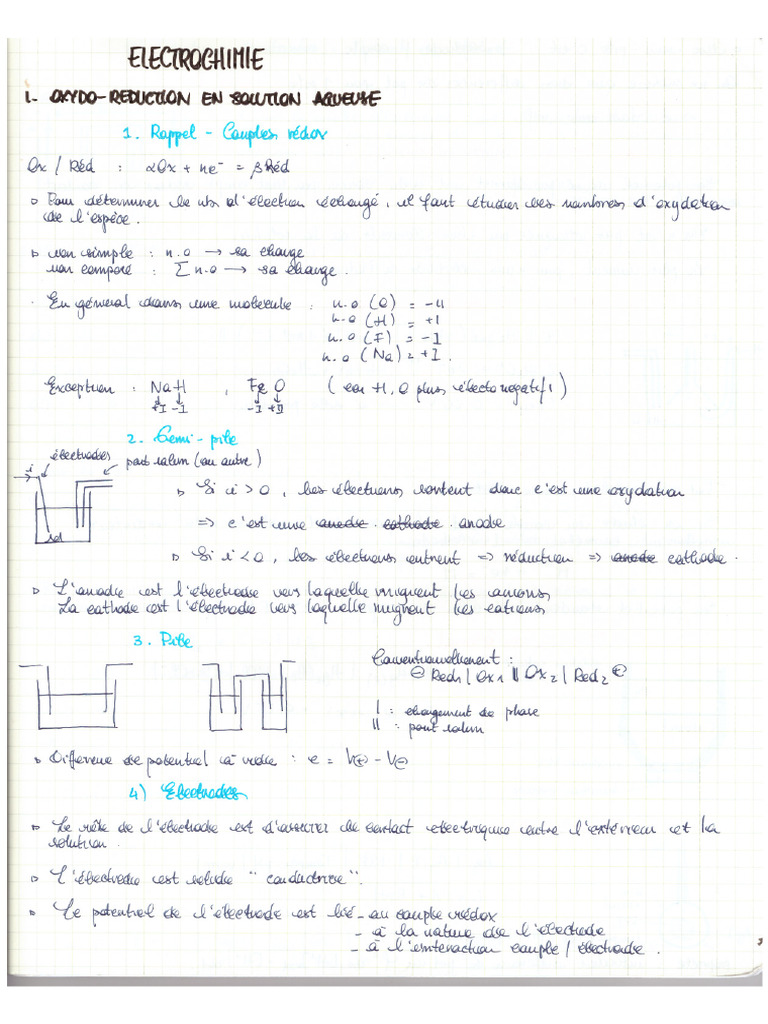 ELECTROCHIMIE
I - OXYDO-REDUCTION EN SOLUTION AQUEUSE
1. Rappel - Couples rédox
Ox / Réd : αOx + ne⁻ = βRéd
Pour déterminer le nb d'électron échangé, il faut étudier les nombres d'oxydation
de l'espèce.
ion simple : n.o → sa charge
ion composé : Σ n.o → sa charge.
En général dans une molécule : n.o (O) = -II
n.o (H) = +I
n.o (F) = -I
n.o (Na) = +I.
Exception : NaH , F₂O (car H, O plus électronégatif)
+I -I -I +II
2. Demi-pile
électrodes
pont salin (ou autre)
i
sol
Si i > 0, les électrons sortent donc c'est une oxydation
=> c'est une anode . cathode . anode
Si i < 0, les électrons entrent => réduction => anode cathode.
L'anode est l'électrode vers laquelle migrent les anions
La cathode est l'électrode vers laquelle migrent les cations
3. Pile
Conventionnellement :
⊖ Red₁ | Ox₁ || Ox₂ | Red₂ ⊕
| : changement de phase
|| : pont salin
Différence de potentiel à vide : e = V⊕ - V⊖
4) Electrodes
Le rôle de l'électrode est d'assurer le contact électrique entre l'extérieur et la
solution.
L'électrode est solide "conductrice".
Le potentiel de l'électrode est lié - au couple rédox
- à la nature de l'électrode
- à l'interaction couple / électrode.